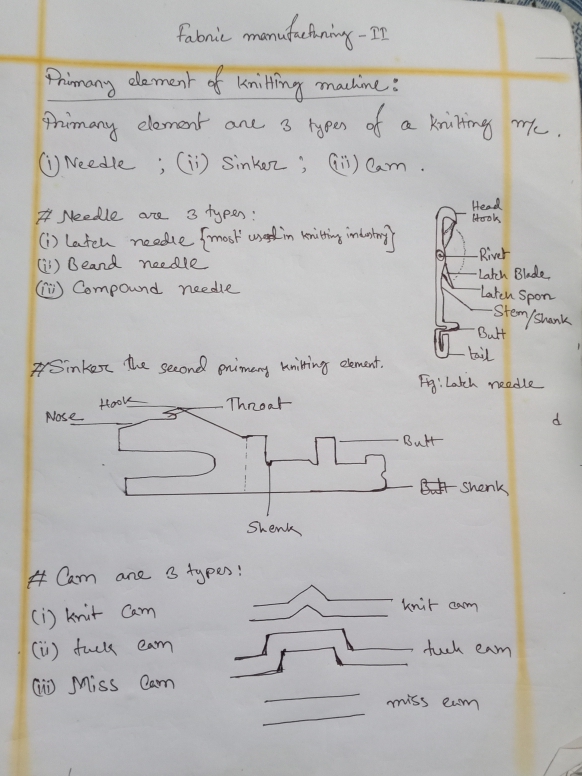 Fabric manufacturing - II
Primary element of knitting machine:
Primary element are 3 types of a knitting m/c.
(i) Needle ; (ii) Sinker ; (iii) Cam .
# Needle are 3 types:
(i) Latch needle {most used in knitting industry}
(ii) Beard needle
(iii) Compound needle
Head
Hook
Rivet
Latch Blade
Latch Spon
Stem/Shank
Butt
tail
Fig: Latch needle
# Sinker the second primary knitting element.
Hook
Throat
Nose
Butt
Shenk
Shenk
d
# Cam are 3 types:
(i) knit Cam
knit cam
(ii) tuck cam
tuck cam
(iii) Miss Cam
miss cam